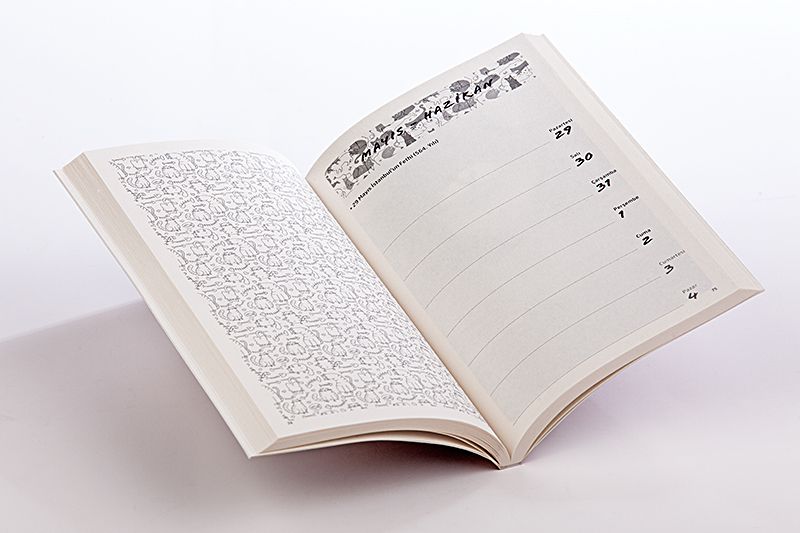 MAYIS - HAZİRAN
• 29 Mayıs İstanbul'un Fethi (564. Yılı)
Pazartesi
29
Salı
30
Çarşamba
31
Perşembe
1
Cuma
2
Cumartesi
3
Pazar
4
75